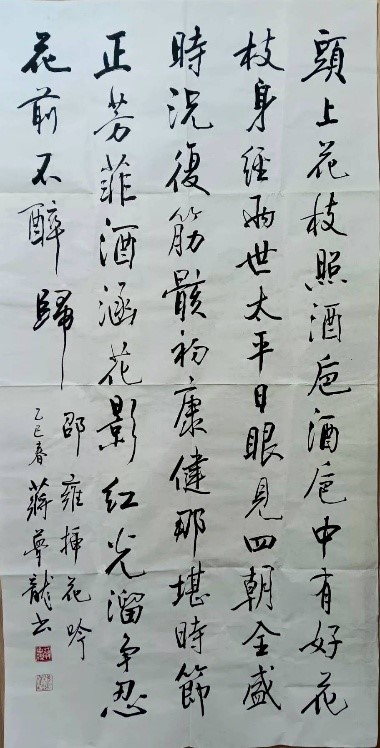 頭上花枝照酒巵酒巵中有好花
枝身經兩世太平日眼見四朝全盛
時況復筋骸初康健那堪時節
正芳菲酒涵花影紅光溜争忍
花前不醉歸
邵雍插花吟
乙巳春蔣尊龍书